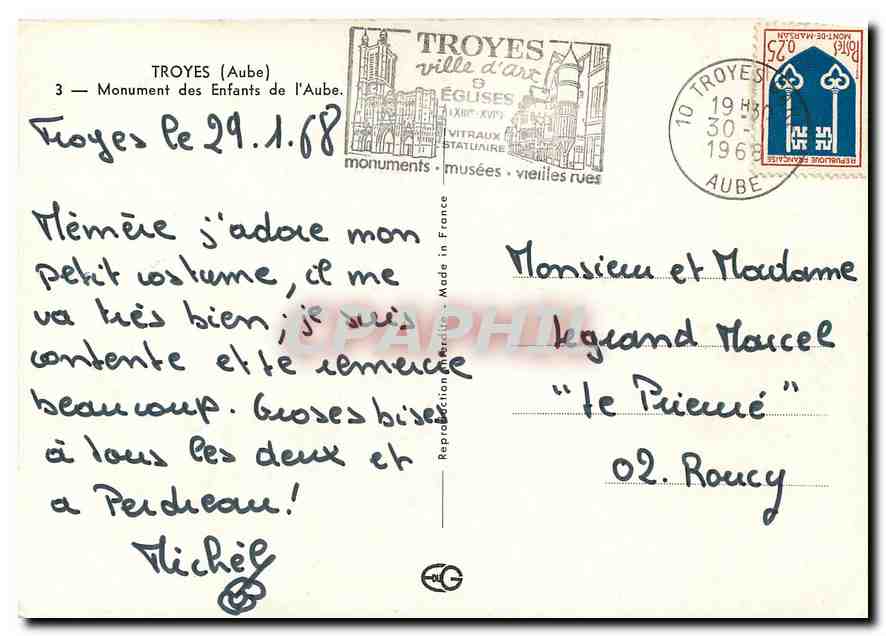 TROYES (Aube)
3 — Monument des Enfants de l'Aube.
TROYES
ville d'art
9
ÉGLISES
(XIIIe-XVIe)
VITRAUX
STATUAIRE
monuments · musées · vieilles rues
10 TROYES
19 H30
30-
1968
AUBE
0,25
POSTES
MONT-DE-MARSAN
REPUBLIQUE FRANÇAISE
Troyes le 29.1.68
Mémère j'adore mon
petit costume, il me
va très bien, je suis
contente et te remercie
beaucoup. Groses bises
à tous les deux et
a Perdreau!
Michèle
Reproduction interdite - Made in France
Monsieur et Madame
Legrand Marcel
"Le Prieuré"
02. Roucy
CPAPHIL